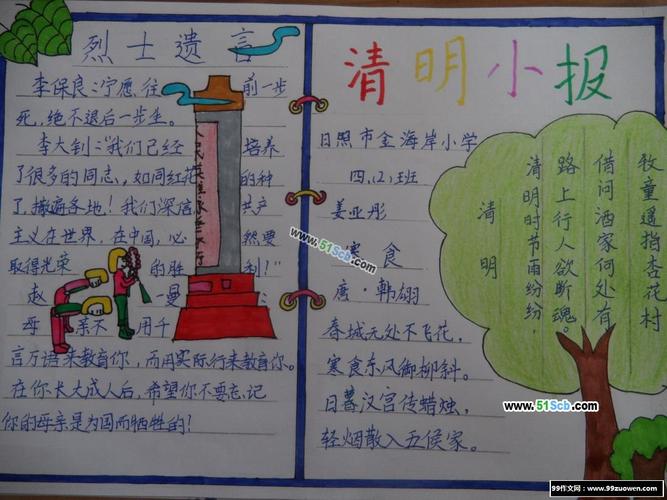 烈士遗言
李保良:宁愿往前一步
死,绝不退后一步生。
李大钊:“我们已经培养
了很多的同志,如同红花的种
了,撒遍各地!我们深信,共产
主义在世界、在中国,必然要
取得光荣的胜利!”
赵一曼
母亲不用千
言万语来教育你,而用实际行来教育你。
在你长大成人后,希望你不要忘记
你的母亲是为国而牺牲的!
人民英雄永垂不朽
清明小报
日照市金海岸小学
四.(2)班
姜亚彤
寒食
唐·韩翃
春城无处不飞花,
寒食东风御柳斜。
日暮汉宫传蜡烛,
轻烟散入五侯家。
清明
清明时节雨纷纷,
路上行人欲断魂。
借问酒家何处有
牧童遥指杏花村
www.51Scb.com
www.51Scb.com
99作文网:www.99zuowen.com